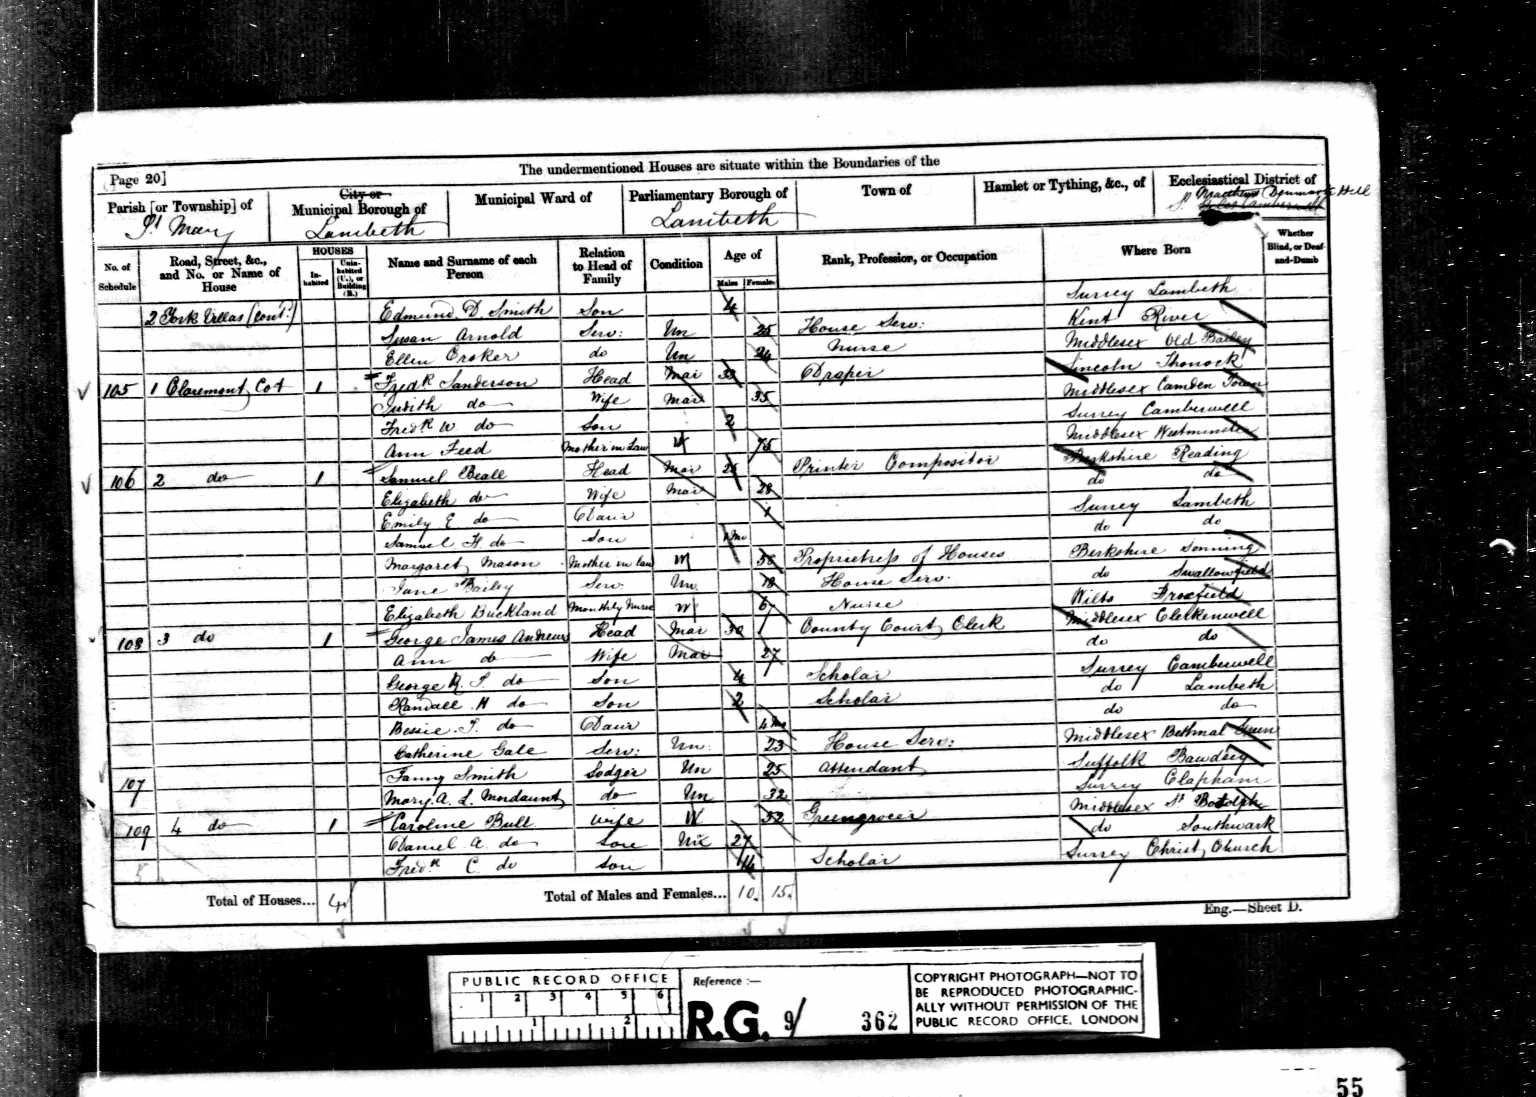 Page 20]
The undermentioned Houses are situate within the Boundaries of the
Parish [or Township] of
St Mary
City or Municipal Borough of
Lambeth
Municipal Ward of
Parliamentary Borough of
Lambeth
Town of
Hamlet or Tything, &c., of
Ecclesiastical District of
St Matthews Denmark Hill
No. of Schedule
Road, Street, &c., and No. or Name of House
HOUSES
Inhabited
Uninhabited (U.), or Building (B.)
Name and Surname of each Person
Relation to Head of Family
Condition
Age of
Males
Females
Rank, Profession, or Occupation
Where Born
Whether Blind, or Deaf-and-Dumb
2 York Villas (cont.d) Edmund D. Smith Son 4 Surrey Lambeth
Susan Arnold Serv: Un 25 House Serv: Kent River
Ellen Croker do Un 24 Nurse Middlesex Old Bailey
105 1 Claremont Cot 1 Fredk Sanderson Head Mar 33 Draper Lincoln
Judith do Wife Mar 35 Middlesex Camden Town
Fredk W do Son 2 Surrey Camberwell
Ann Feed Mother in Law W 75 Middlesex Westminster
106 2 do 1 Samuel Beall Head Mar 25 Printer Compositor Berkshire Reading
Elizabeth do Wife Mar 28 do do
Emily E do Daur 1 Surrey Lambeth
Samuel H do Son 1 Mo do do
Margaret Mason Mother in law W 58 Proprietress of Houses Berkshire Sonning
Jane Bailey Serv. Un. 18 House Serv. do Swallowfield
Elizabeth Buckland Monthly Nurse W 67 Nurse Wilts Froxfield
108 3 do 1 George James Andrews Head Mar 30 County Court Clerk Middlesex Clerkenwell
Ann do Wife Mar 27 do do
George R. J. do Son 4 Scholar Surrey Camberwell
Randall H do Son 2 Scholar do Lambeth
Bessie J. do Daur 4 Mo do do
Catherine Gale Serv: Un. 23 House Serv: Middlesex Bethnal Green
107 Fanny Smith Lodger Un 25 Attendant Suffolk Bawdsey
Mary A. L. Mordaunt do Un 32 Surrey Clapham
109 4 do 1 Caroline Bull Wife W 52 Greengrocer Middlesex St Botolph
Daniel A. do Son Un 27 do Southwark
Fredk C. do Son 14 Scholar Surrey Christ Church
Total of Houses... 4
Total of Males and Females... 10. 15.
Eng.—Sheet D.
PUBLIC RECORD OFFICE
1 2 3 4 5 6
1 2
Reference :—
R.G. 9/ 362
COPYRIGHT PHOTOGRAPH—NOT TO
BE REPRODUCED PHOTOGRAPHIC-
ALLY WITHOUT PERMISSION OF THE
PUBLIC RECORD OFFICE, LONDON
55